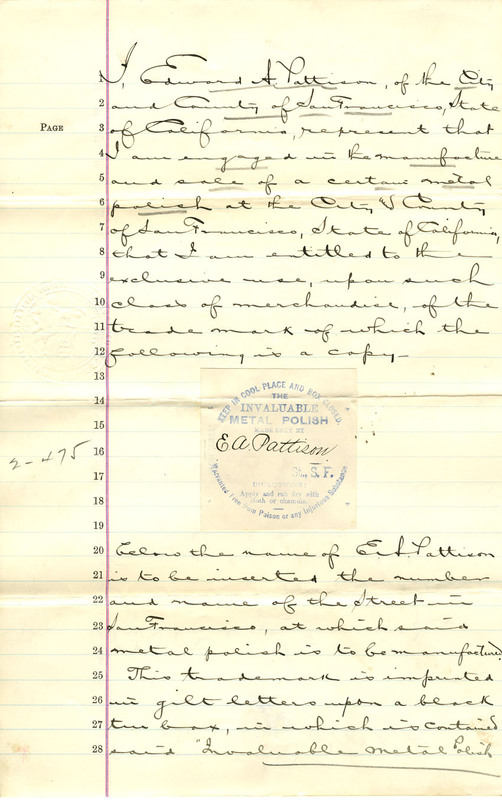 1 I, Edward A. Pattison, of the City
2 and County of San Francisco, State
PAGE
3 of California, represent that
4 I am engaged in the manufacture
5 and sale of a certain metal
6 polish at the City & County
7 of San Francisco, State of California,
8 that I am entitled to the
9 exclusive use, upon such
10 class of merchandise, of the
11 trade mark of which the
12 following is a copy—
13
14
15
16
17
18
19
2-475
KEEP IN COOL PLACE AND BOX CLOSED.
THE
INVALUABLE
METAL POLISH
MADE ONLY BY
E.A. Pattison
St., S. F.
DIRECTIONS:
Apply and rub dry with
cloth or chamois.
Warranted Free from Poison or any Injurious Substance
20 below the name of E.A. Pattison
21 is to be inserted the number
22 and name of the Street in
23 San Francisco, at which said
24 metal polish is to be manufactured
25 This trademark is imprinted
26 in gilt letters upon a black
27 tin box, in which is contained
28 said "Invaluable Metal Polish